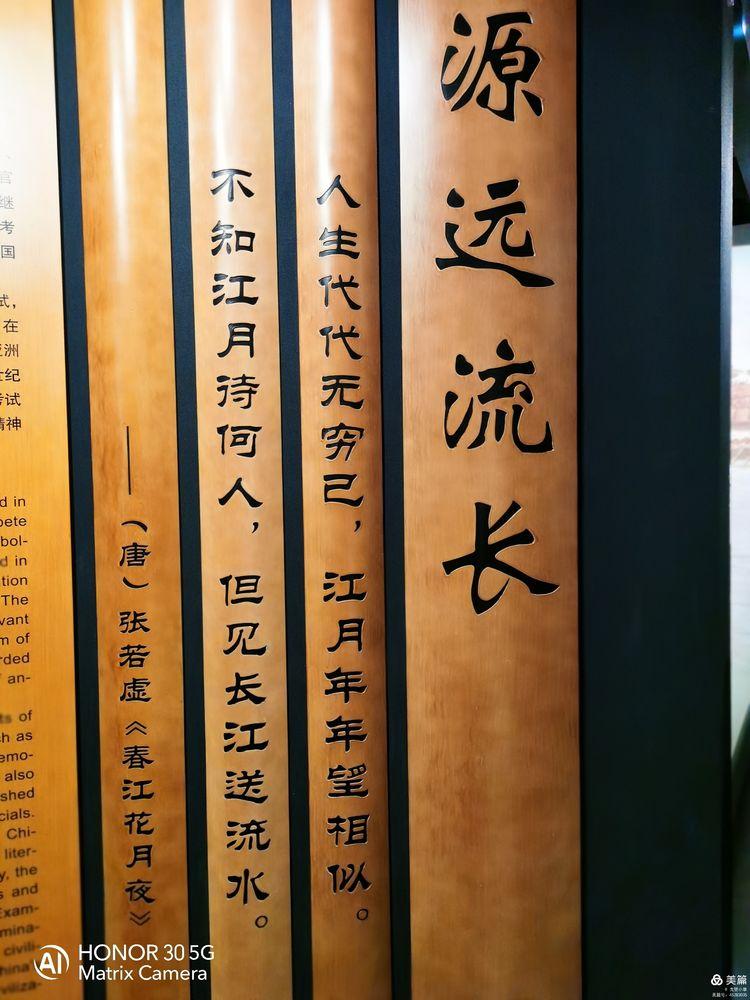 源远流长
人生代代无穷已，江月年年望相似。
不知江月待何人，但见长江送流水。
——（唐）张若虚《春江花月夜》
官
继
考
国
式，
在
亚洲
世纪
考试
精神
d in
pete
bol-
d in
tion
The
vant
m of
rded
an-
ts of
ch as
emo-
also
shed
cials.
Chi-
liter-
y, the
s and
Exam-
mina-
civili-
China'
viliza-
AI
HONOR 30 5G
Matrix Camera
美篇